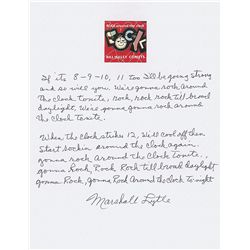 ROCK around the clock
ROCK
BILL HALEY COMETS
If its 8-9-10, 11 too I'll be going strong
and so will you. We're gonna rock around
the clock tonite, Rock, rock rock till broad
daylight, We're gonna rock around
the clock tonite.
When the clock strikes 12, We'll cool off then
Start rockin around the clock again.
gonna rock around the clock tonite,
gonna Rock, Rock, Rock till broad daylight
gonna Rock, gonna Rock around the clock tonight
Marshall Lytle